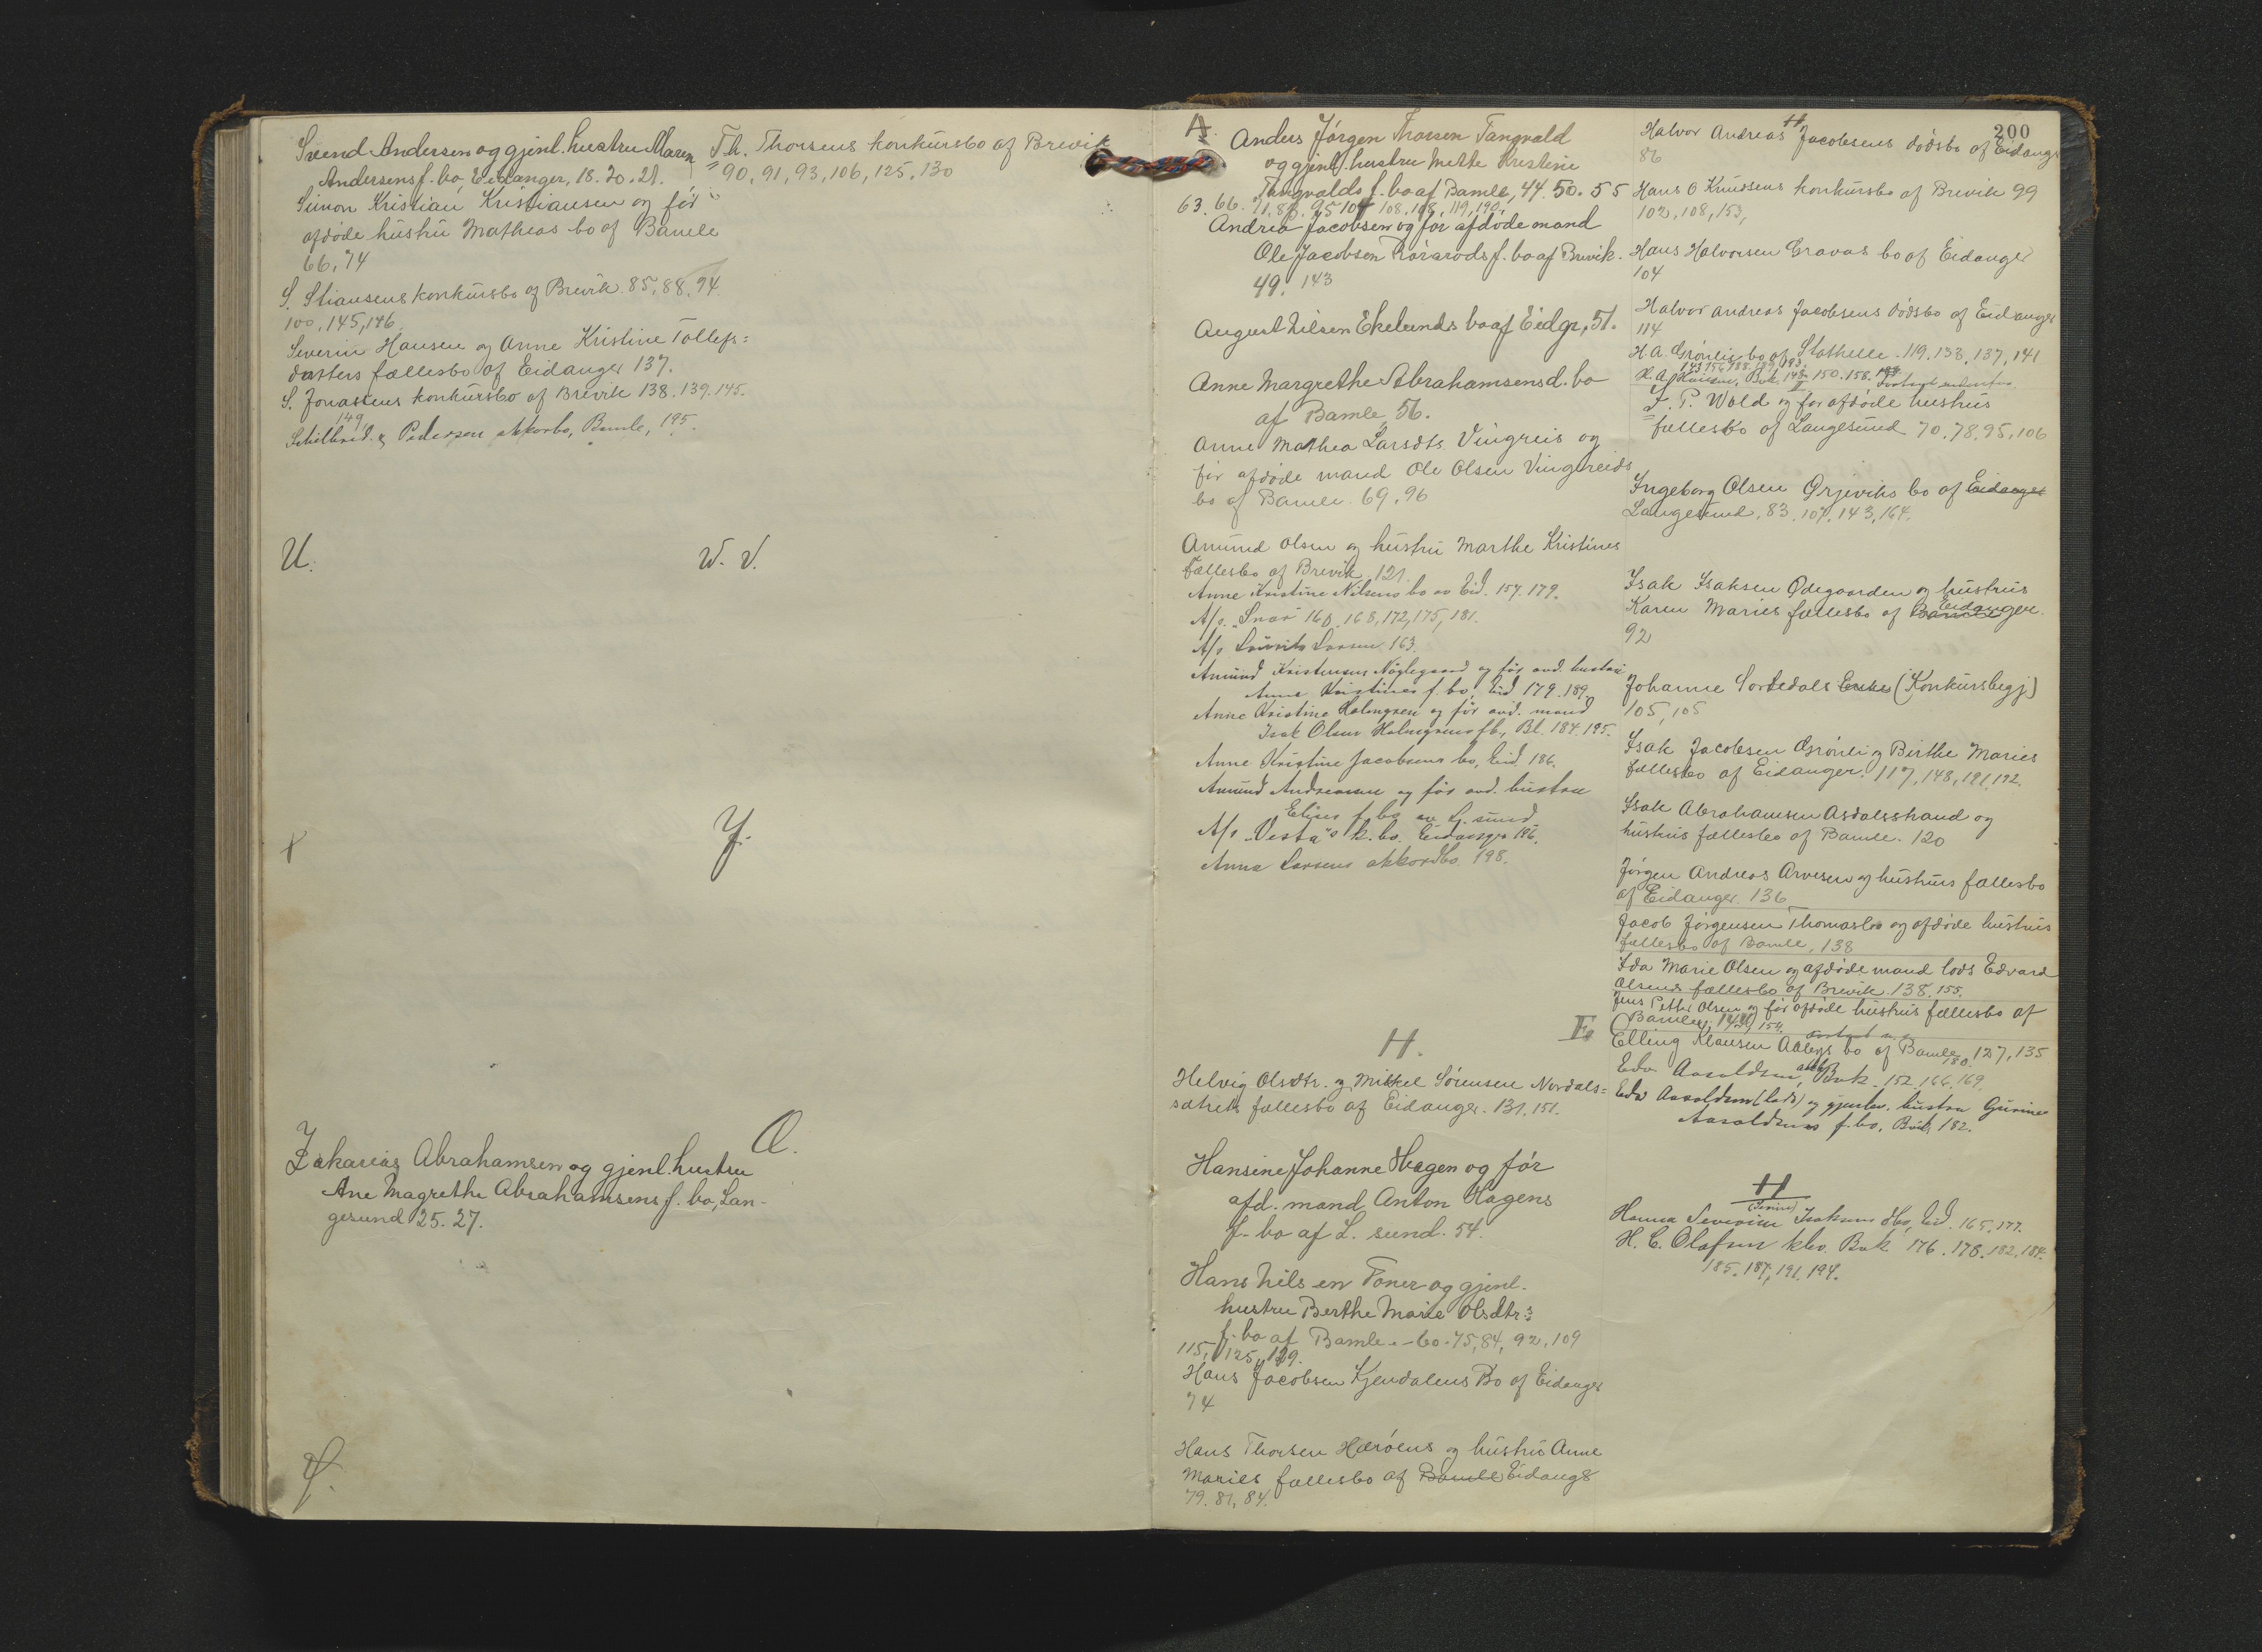 Svend Andersen og gjenl. hustru Maren
Andersens f. bo, Eidanger, 18. 20. 21.
Simon Kristian Kristiansen og før
afdøde hustru Matheas bo af Bamle
66, 74
S. Stiansens konkursbo af Brevik. 85, 88, 94.
100, 145, 146.
Severin Hansen og Anne Kristine Tollefs=
datters fællesbo af Eidanger 137.
S. Jonassens konkursbo af Brevik 138. 139. 145.
149
Pedersen akkordbo, Bamle, 195.
U.
Zakarias Abrahamsen og gjenl. hustru
Ane Magrethe Abrahamsens f. bo, Lan-
gesund 25. 27.
Th. Thorsens konkursbo af Brevik
90, 91, 93, 106, 125, 130
W. V.
Y.
A
Anders Jørgen Thorsen Tangvald
og gjenl. hustru Mette Kristine
Tangvalds f. bo af Bamle, 44. 50. 55
63. 66.
Andrea Jacobsen og før afdøde mand
Ole Jacobsen f. bo af Brevik.
49. 143
August Nilsen Ekelunds bo af Eidgr, 51.
Anne Margrethe Abrahamsens d. bo
af Bamle, 56.
Anne Mathea Larsdtr Vingreis og
før afdøde mand Ole Olsen Vingereids
bo af Bamle. 69, 96
Amund Olsen og hustru Marthe Kristines
fællesbo af Brevik, 121.
Anne Kristine Nilsens bo av Eid. 157. 179.
A/s. "Snar" 160. 168, 172, 175, 181.
A/s Lauritz Larsen 163.
Amund Kristensen og før avd. hustru
Anne Kristines f. bo, Eid. 179. 189.
Anne Kristine Holmgren og før avd. mand
Isak Olsen Holmgrens fb, Bl. 184. 195.
Anne Kristine Jacobsens bo, Eid. 186.
Amund Andreassen og før avd. hustru
Elises f. bo av L. sund.
A/s "Vesta"s k. bo. Eidanger 196.
Anna Larsens akkordbo 198.
H.
Helvig Olsdtr. og Mikkel Sørensen Nordals=
sætrets fællesbo af Eidanger. 131. 151.
Hansine Johanne Hagen og før
afd. mand Anton Hagens
f. bo af L. sund. 54.
Hans Nilsen Toner og gjenl.
hustru Berthe Marie Olsdtr:s
f. bo af Bamle. - 60. 75, 84, 92, 109
115, 125, 129.
Hans Jacobsen Kjendalens Bo af Eidanger
74
Hans Thorsen Hærøens og hustru Anne
Maries fællesbo af Bamle Eidangr
79. 81, 84.
200
H
Halvor Andreas Jacobsens dødsbo af Eidangr
86
Hans O Knudsens konkursbo af Brevik 99
102, 108, 153,
Hans Halvorsen Gravas bo af Eidanger
104
Halvor Andreas Jacobsens dødsbo af Eidanger
114
H. A. Grønlis bo af Stathelle. 119. 133, 137, 141
H. A. Hansen, Bvk. 148. 150. 158.
I
J. P. Wold og før afdøde hustrus
fællesbo af Langesund 70, 78, 95, 106
Ingeborg Olsen Ørjeviks bo af Eidanger
Langesund, 83, 107, 143, 164.
Isak Isaksen Ødegaarden og hustrus
Karen Maries fællesbo af Bamle Eidanger.
92
Johanne Sortedals Enkes (Konkursbegj.)
105, 105
Isak Jacobsen Grønli og Birthe Maries
fællesbo af Eidanger. 117, 148, 191, 192.
Isak Abrahamsen Asdalsstrand og
hustrus fællesbo af Bamle. 120
Jørgen Andreas Arvesen og hustrus fællesbo
af Eidanger. 136
Jacob Jørgensen Thomaslos og afdøde hustrus
fællesbo af Bamle, 138
Ida Marie Olsen og afdøde mand lods Edvard
Olsens fællesbo af Brevik 138. 155.
Jens Petter Olsen og før afdøde hustrus fællesbo af
Bamle, 154.
E.
Elling Klausen Aabys bo af Bamle 127, 135
Edv. Aaraldsen, Bvk. 152. 166. 169. 180
Edv Aaraldsen (lods) og gjenlev. hustru Gurine
Aaraldsens f. bo, Bvk, 182.
H
Hanna Severine Isaksens dbo, Eid. 165. 177.
H. C. Olafsen kbo. Bvk 176. 178. 182. 184.
185. 187, 191. 194.